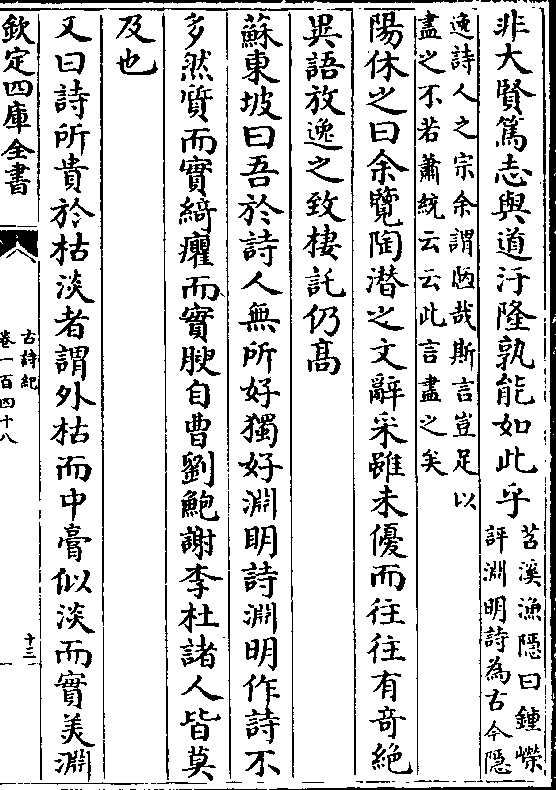 非大賢篤志與道汙隆孰能如此乎苕溪漁隱曰鍾嶸
評淵明詩為古今隱
逸詩人之宗余謂陋哉斯言豈足以
盡之不若蕭統云云此言盡之矣
陽休之曰余覽陶潜之文辭采雖未優而往往有奇絶
異語放逸之致棲託仍髙
蘇東坡曰吾於詩人無所好獨好淵明詩淵明作詩不
多然質而實綺癯而實腴自曹劉鮑謝李杜諸人皆莫
及也
又曰詩所貴於枯淡者謂外枯而中膏似淡而實美淵
欽定四庫全書
古詩紀
卷一百四十八
十三